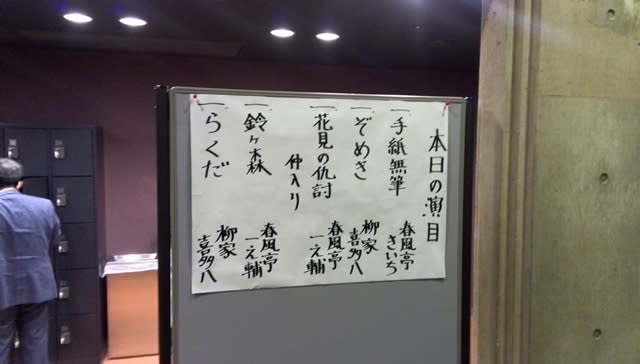 本日の演目
一 手紙無筆 春風亭 きいち
一 ぞめき 柳家 喜多八
一 花見の仇討 春風亭 一之輔
仲入り
一 鈴ヶ森 春風亭 一之輔
一 らくだ 柳家 喜多八